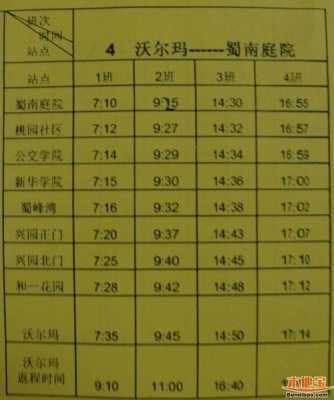 班次
时间
站点
4 沃尔玛------蜀南庭院
站点 1班 2班 3班 4班
蜀南庭院 7:10 9:25 14:30 16:55
桃园社区 7:12 9:27 14:32 16:57
公交学院 7:14 9:29 14:34 16:59
新华学院 7:15 9:30 14:36 17:00
蜀峰湾 7:16 9:32 14:38 17:02
兴园正门 7:20 9:37 14:43 17:07
兴园北门 7:25 9:40 14:45 17:10
和一花园 7:28 9:42 14:48 17:12
沃尔玛 7:35 9:45 14:50 17:14
沃尔玛
返程时间 9:10 11:00 16:40
本地宝
Bendibao.com